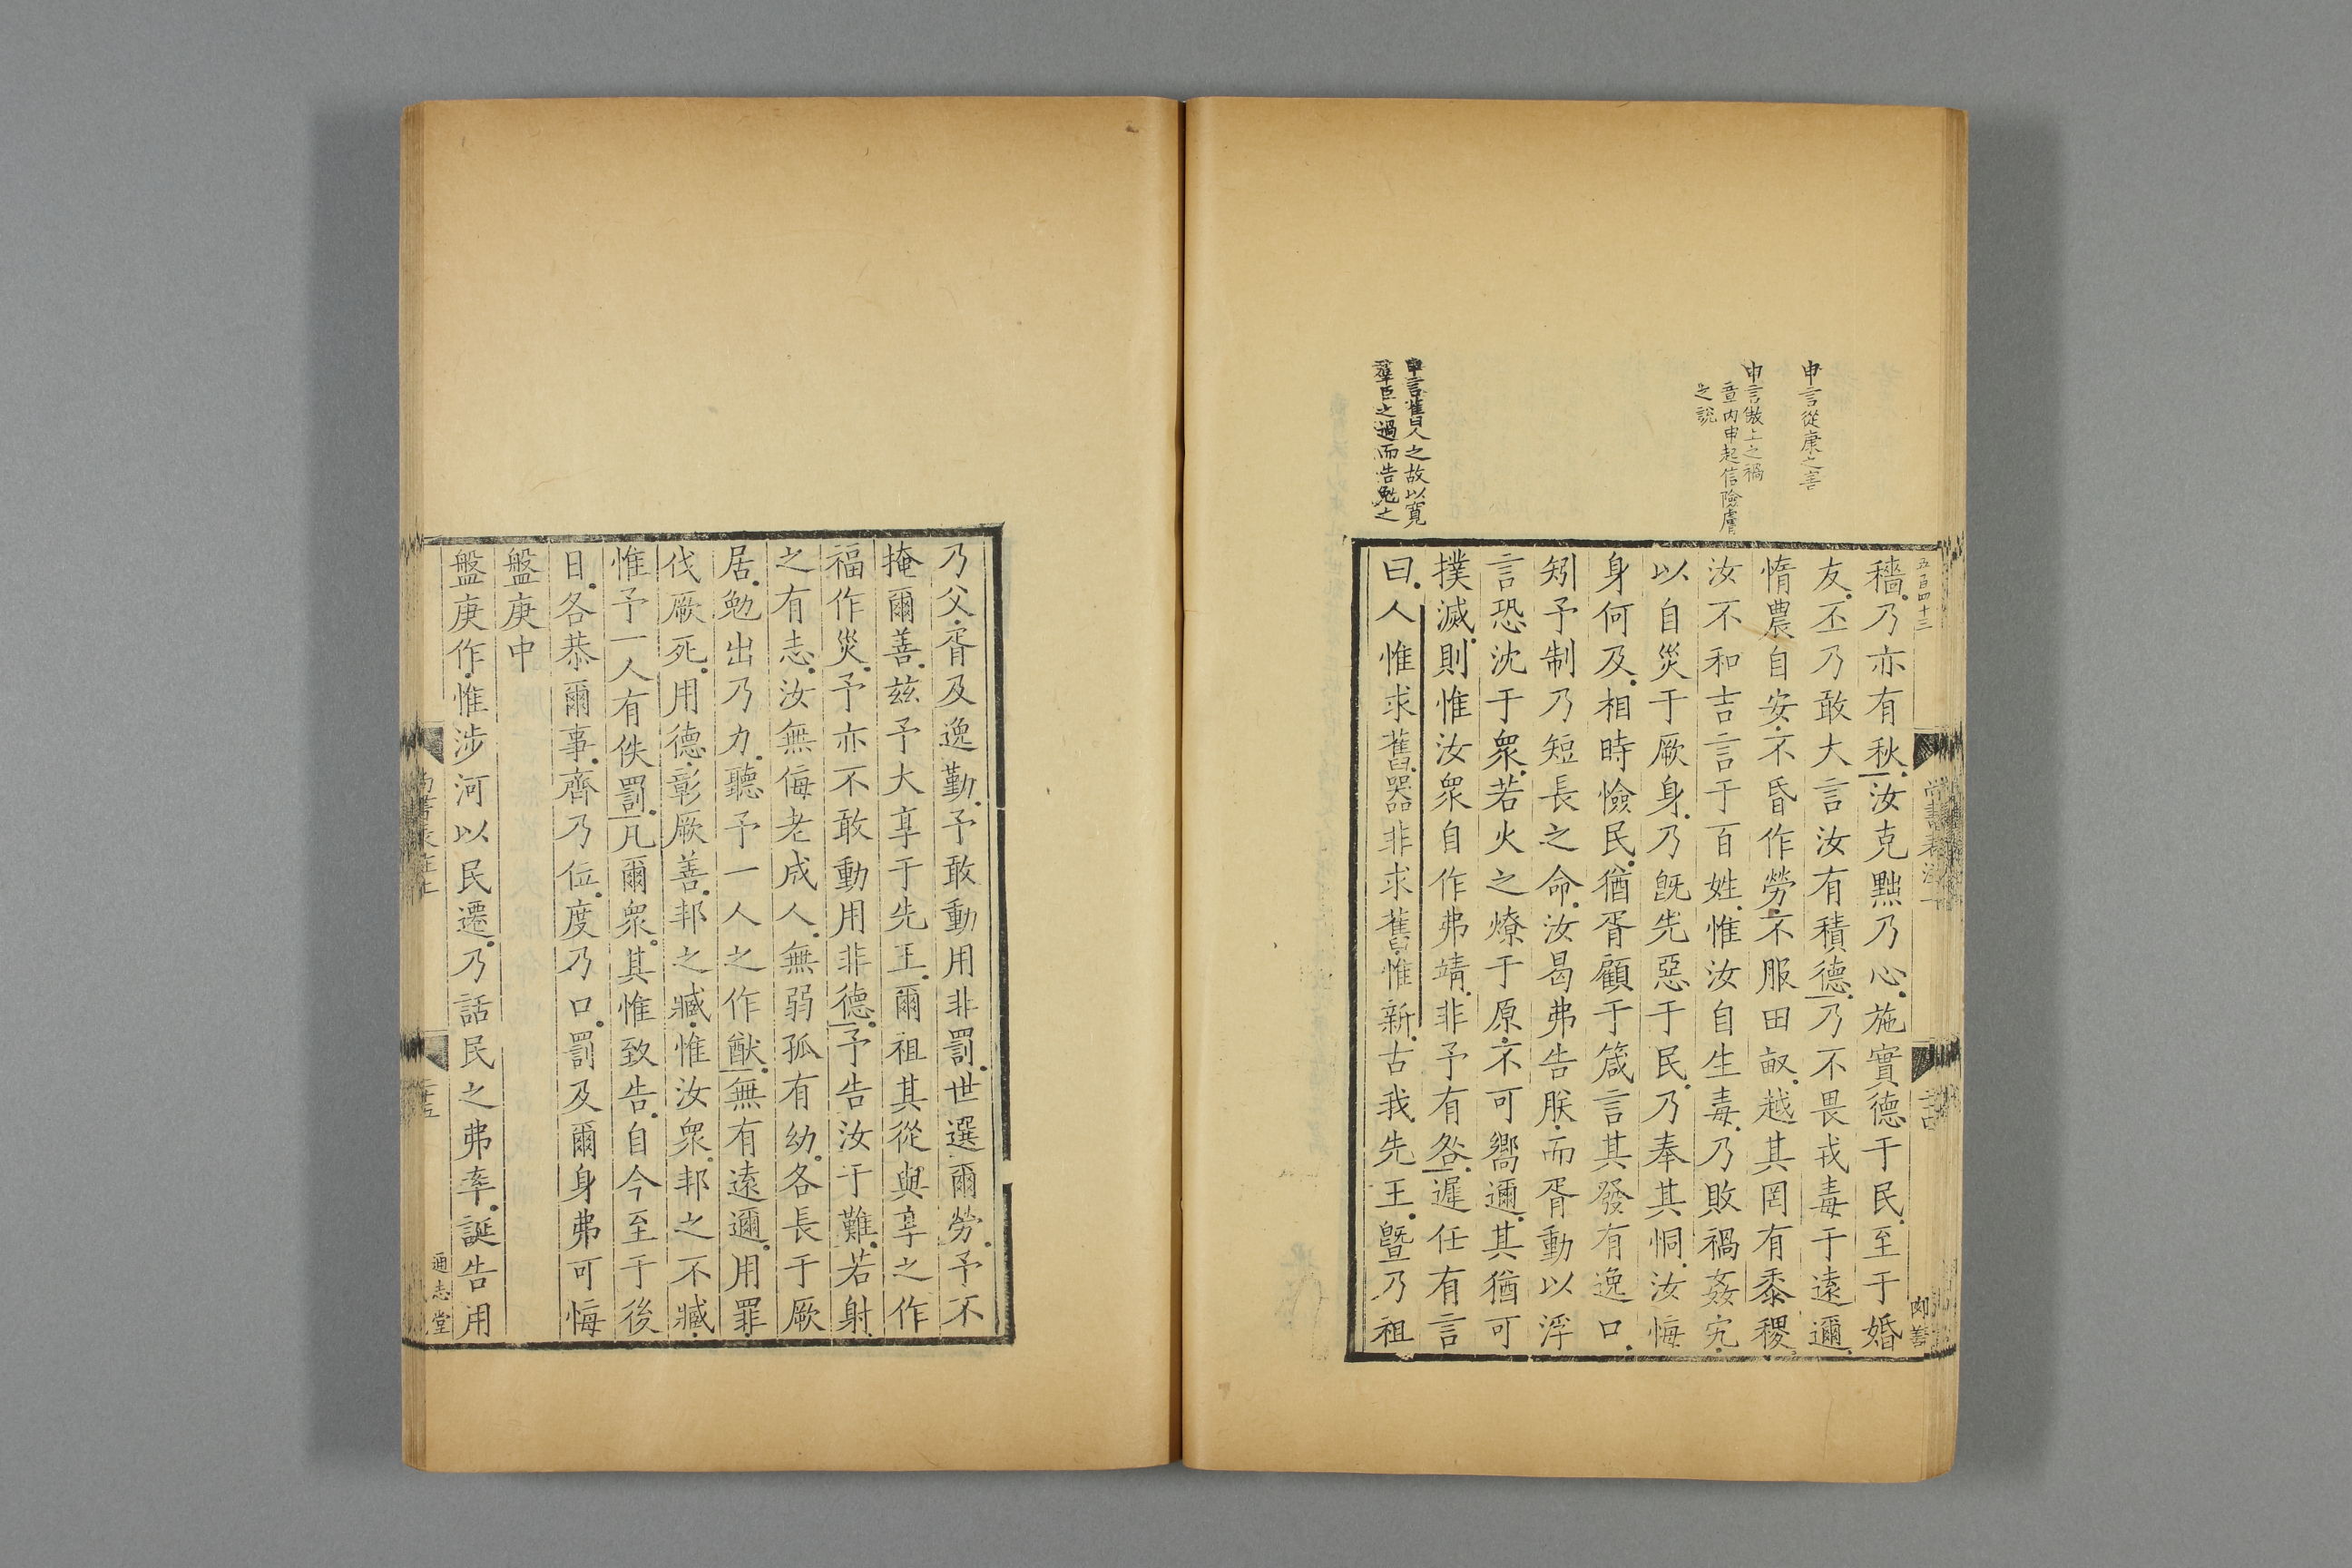 申言從康之害
申言傲上之禍
章内申起信險膚
之說
申言舊人之故以寬
羣臣之過而告勉之
五百四十三
尚書表注上
二十四
穡乃亦有秋汝克黜乃心施實德于民至于婚
友丕乃敢大言汝有積德乃不畏戎毒于遠邇
惰農自安不昏作勞不服田畝越其罔有黍稷
汝不和吉言于百姓惟汝自生毒乃敗禍姦宄
以自災于厥身乃旣先惡于民乃奉其恫汝悔
身何及相時憸民猶胥顧于箴言其發有逸口
矧予制乃短長之命汝曷弗告朕而胥動以浮
言恐沈于衆若火之燎于原不可嚮邇其猶可
撲滅則惟汝衆自作弗靖非予有咎遲任有言
曰人惟求舊器非求舊惟新古我先王曁乃祖
乃父胥及逸勤予敢動用非罰世選爾勞予不
掩爾善茲予大享于先王爾祖其從與享之作
福作災予亦不敢動用非德予告汝于難若射
之有志汝無侮老成人無弱孤有幼各長于厥
居勉出乃力聽予一人之作猷無有遠邇用罪
伐厥死用德彰厥善邦之臧惟汝衆邦之不臧
惟予一人有佚罰凡爾衆其惟致告自今至于後
日各恭爾事齊乃位度乃口罰及爾身弗可悔
盤庚中
盤庚作惟涉河以民遷乃話民之弗率誕告用
尚書表注上
二十五
通志堂